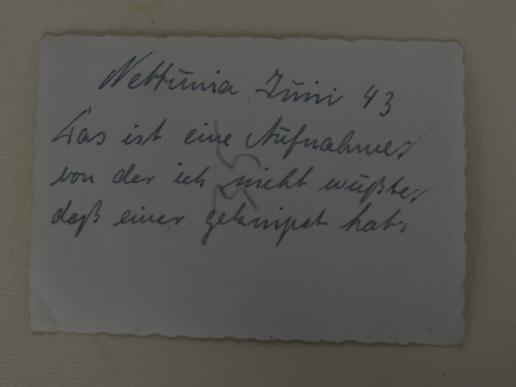 Nettunia Juni 43
Das ist eine Aufnahme,
von der ich nicht wußte,
daß einer geknipst hat.
35